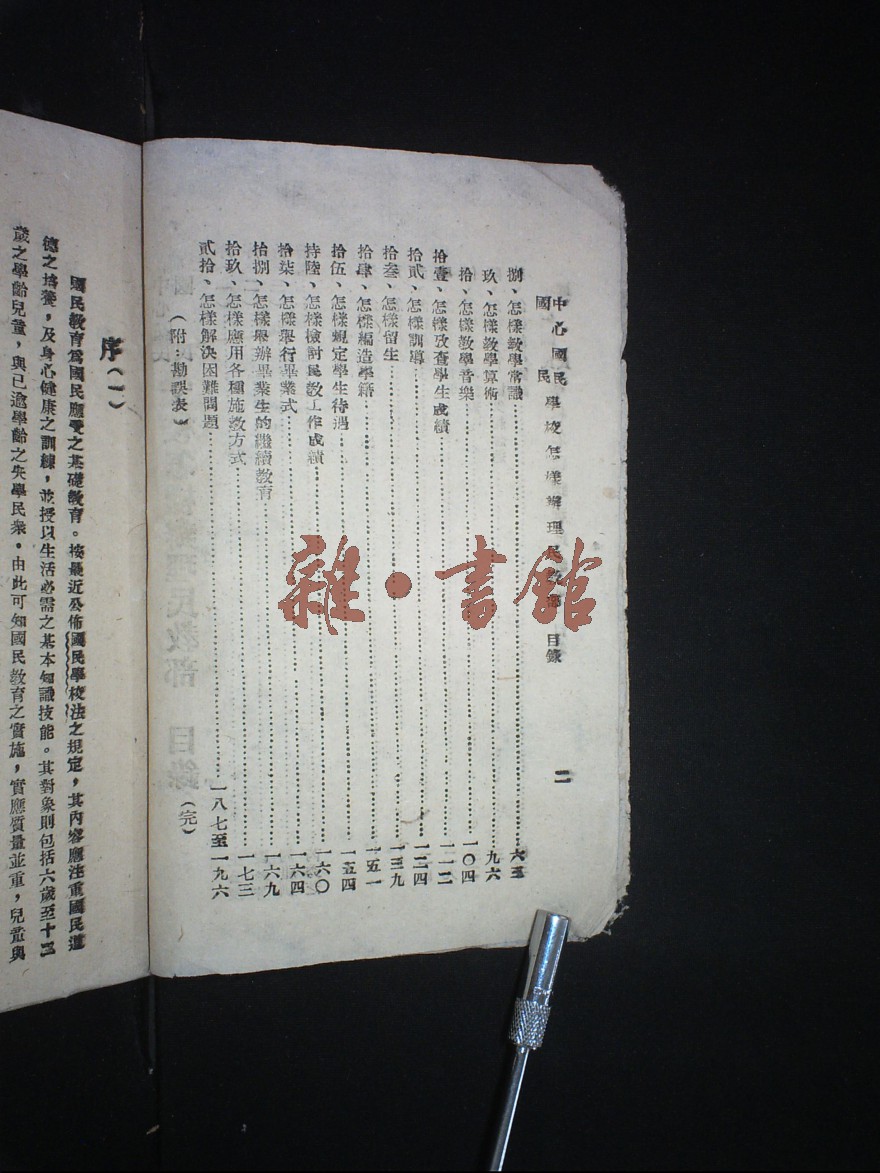 中心國民
國民學校怎樣辦理民教部 目錄 二
捌、怎樣教學常識……六三
玖、怎樣教學算術……九六
拾、怎樣教學音樂……一〇四
拾壹、怎樣攷查學生成績……一一二
拾貳、怎樣訓導……一二四
拾叁、怎樣留生……一三九
拾肆、怎樣編造學籍……一五一
拾伍、怎樣規定學生待遇……一五四
持陸、怎樣檢討民教工作成績……一六〇
拾柒、怎樣舉行畢業式……一六四
拾捌、怎樣舉辦畢業生的繼續教育……一六九
拾玖、怎樣應用各種施教方式……一七三
貳拾、怎樣解決困難問題……一八七至一九六
（附：勘誤表） （完）
序（一）
國民教育爲國民應受之基礎教育。按最近公佈國民學校法之規定，其內容應注重國民道
德之培養，及身心健康之訓練，並授以生活必需之基本知識技能。其對象則包括六歲至十二
歲之學齡兒童，與已逾學齡之失學民衆。由此可知國民教育之實施，實應質量並重，兒童與
雜·書館